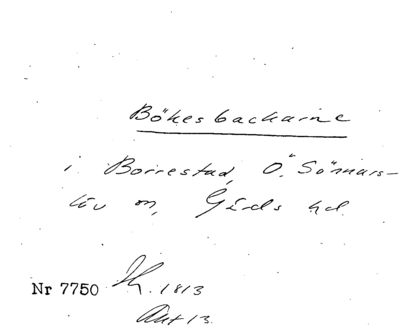 Bökesbackarne
i Borrestad, Ö. Sönnars-
löv sn, Gärds hd.
Nr 7750 1813
Akt 13.